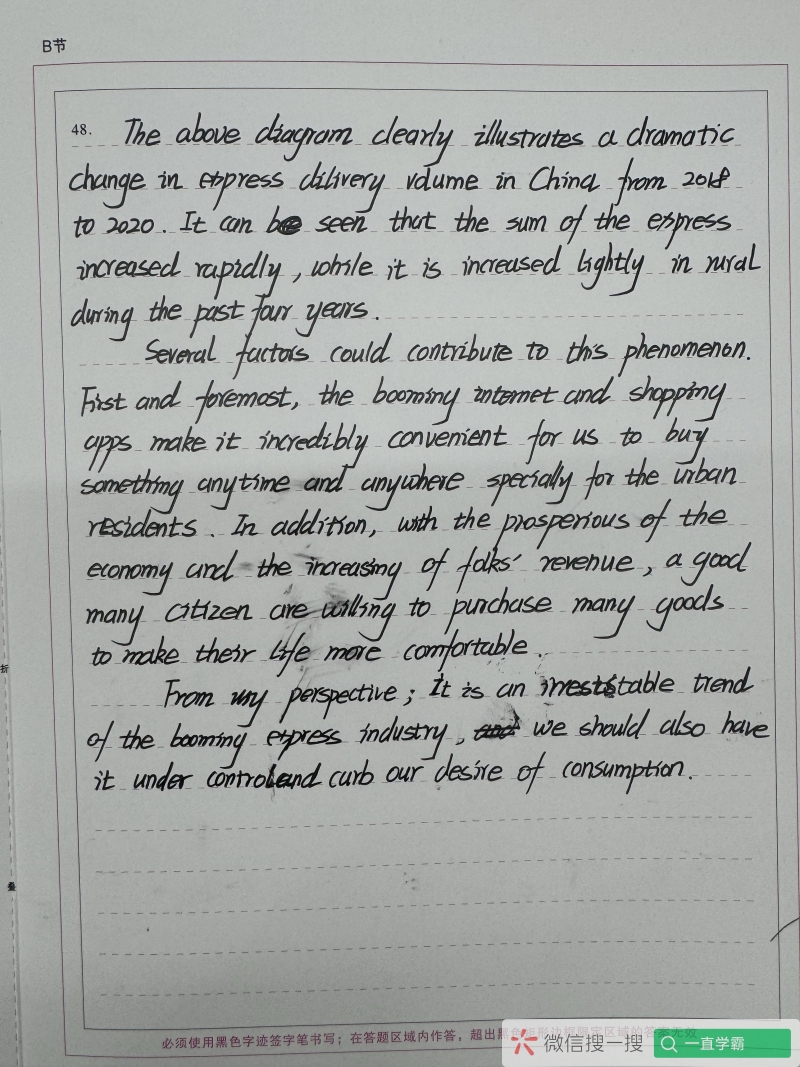 B节
48. The above diagram clearly illustrates a dramatic
change in express dilivery volume in China from 2018
to 2020. It can be seen that the sum of the express
increased rapidly, while it is increased lightly in rural
during the past four years.
Several factors could contribute to this phenomenon.
First and foremost, the booming internet and shopping
apps make it incredibly convenient for us to buy
something anytime and anywhere specially for the urban
residents. In addition, with the prosperious of the
economy and the increasing of folks' revenue, a good
many citizen are willing to purchase many goods
to make their life more comfortable.
From my perspective; It is an irresistable trend
of the booming express industry, we should also have
it under control and curb our desire of consumption.
折
叠
必须使用黑色字迹签字笔书写；在答题区域内作答，超出黑色矩形边框限定区域的答案无效
微信搜一搜
一直学霸